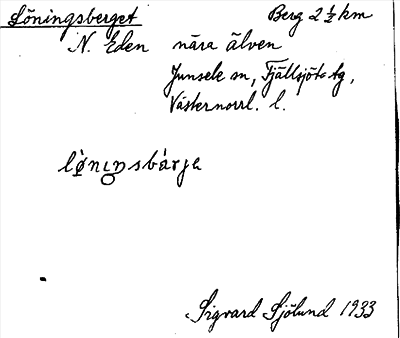 Löningsberget Berg 2 ½ km
N. Eden nära älven
Junsele sn, Fjällsjö tg,
Västernorrl. l.
Sigvard Sjölund 1933